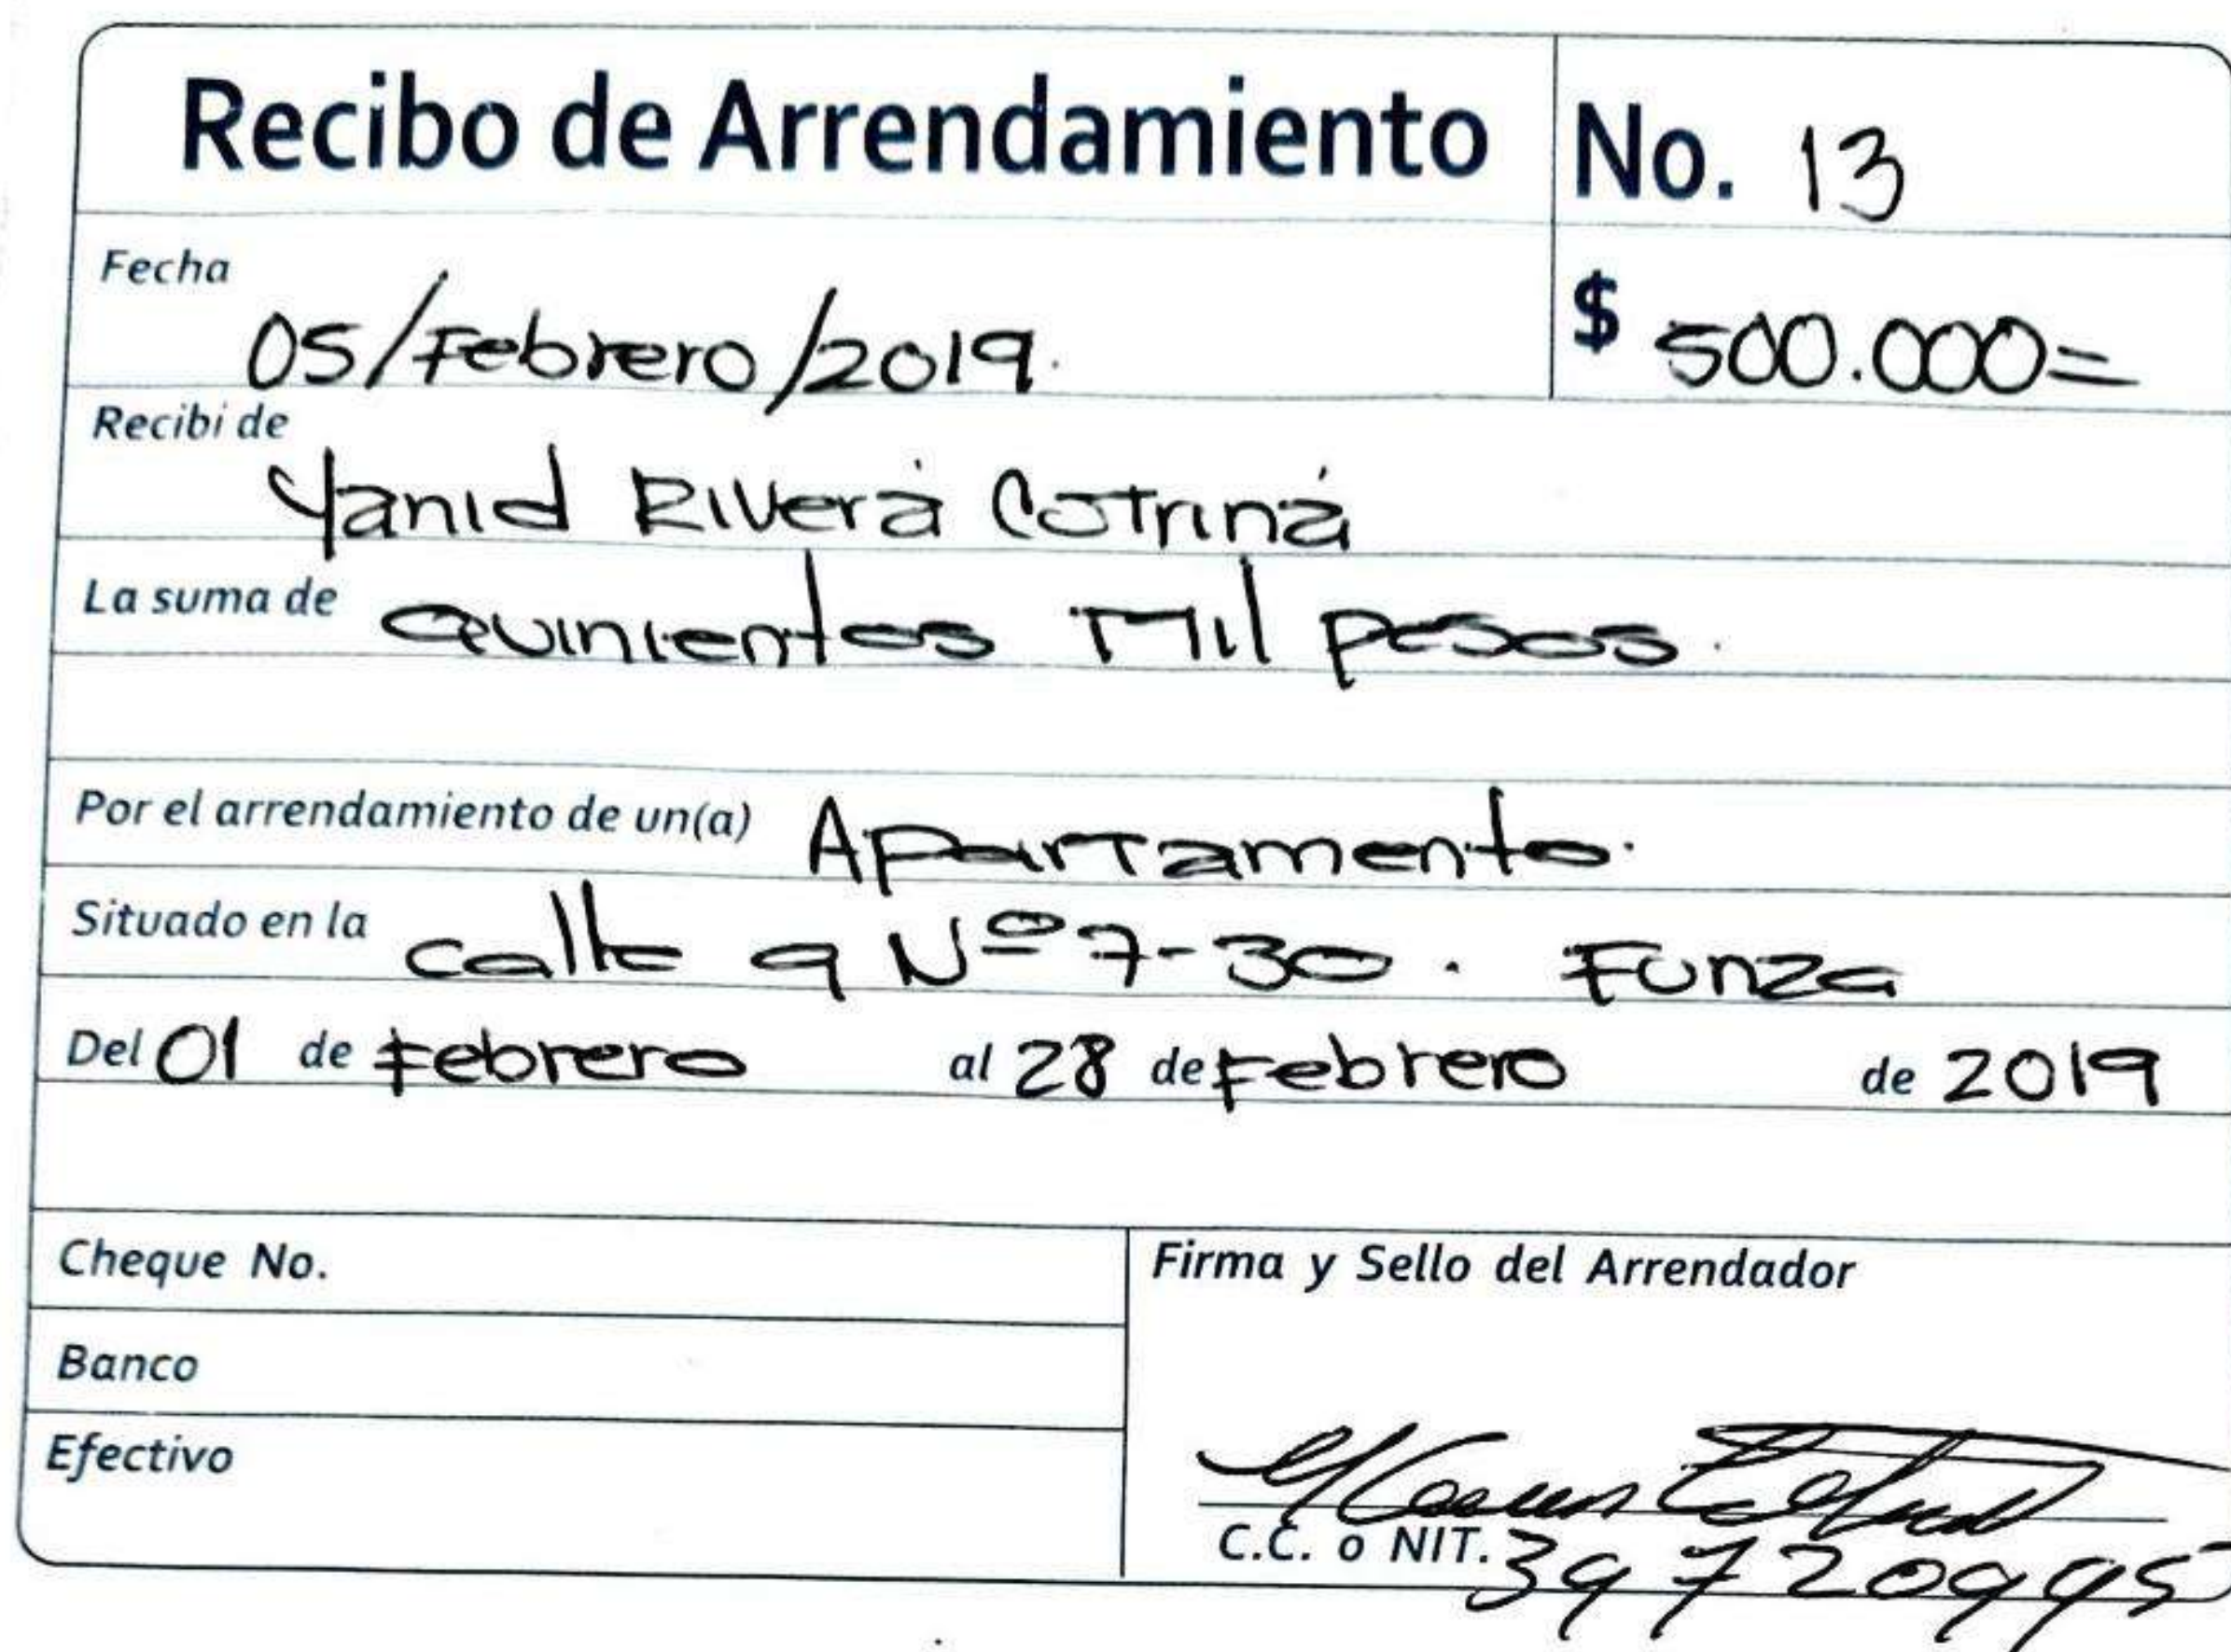 Recibo de Arrendamiento No. 13
Fecha 05/Febrero/2019. $ 500.000=
Recibi de Yanid Rivera Cotrina
La suma de Quinientos Mil pesos.
Por el arrendamiento de un(a) Apartamento.
Situado en la calle 9 Nº 7-30. Funza
Del 01 de Febrero al 28 de Febrero de 2019
Cheque No. Firma y Sello del Arrendador
Banco
Efectivo
C.C. o NIT. 39720995